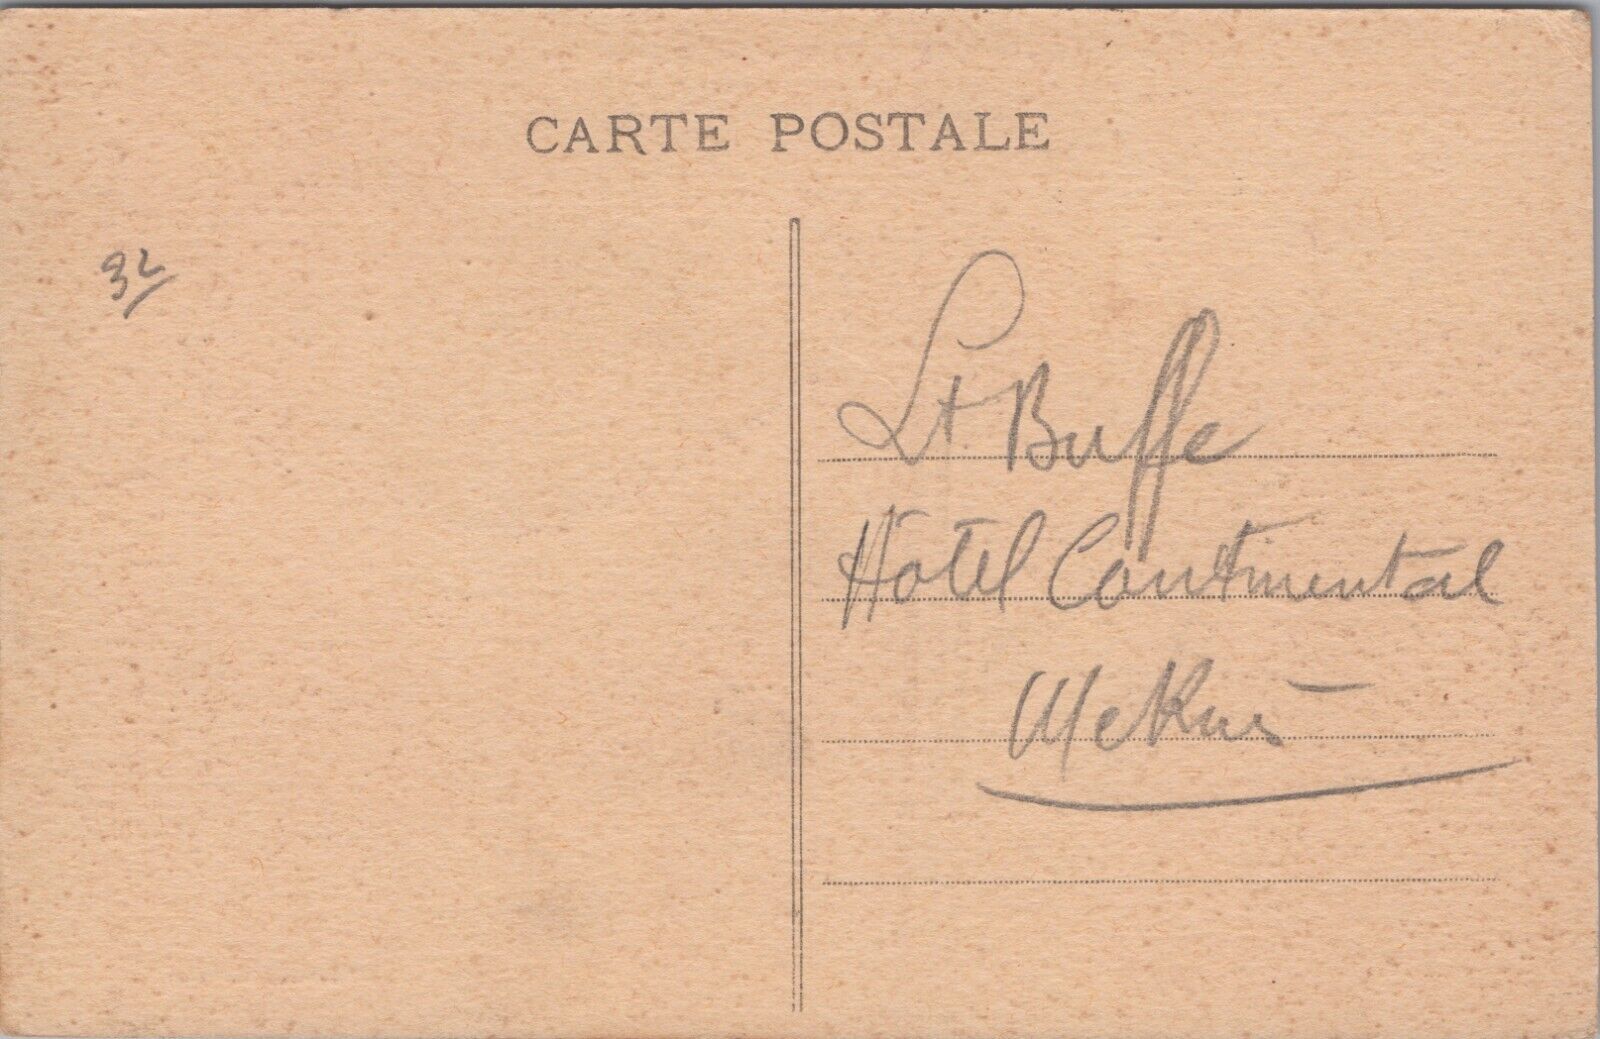 CARTE POSTALE
32
Lt. Buffe
Hôtel Continental
Meknès